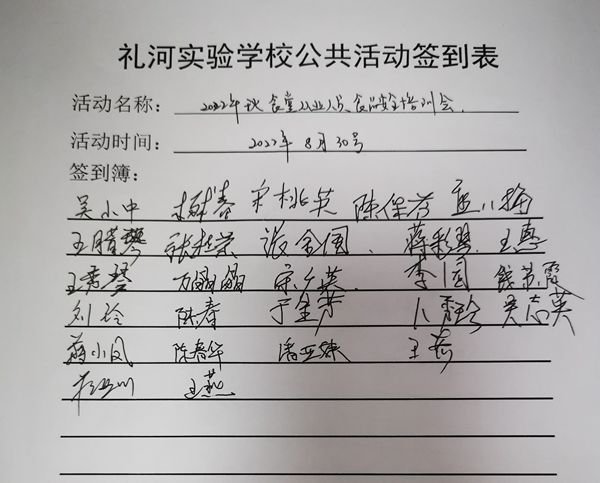 礼河实验学校公共活动签到表
活动名称: 2022年秋食堂从业人员食品安全培训会
活动时间: 2022年8月30号
签到簿:
吴小中 春 宋桃英 陈保芳
王腊琴 张金国 蒋彩琴 王惠
王秀琴 万晶晶 李国
刘玲 陈春 于金芳 吴志英
蒋小凤 陈春华 潘亚娣 王芳
王燕